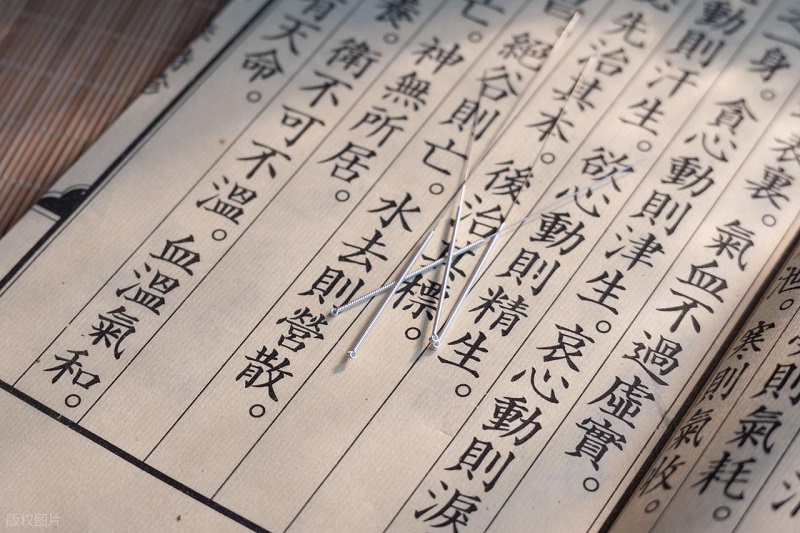 寒則氣收。
則氣耗。
表裏。氣血不過虛實。
一身。貪心動則津生。哀心動則淚
動則汗生。欲心動則精生。
先治其本。後治其標。
絕谷則亡。水去則營散。
亡。神無所居。
養。衛不可不溫。血溫氣和。
有天命。
版权图片